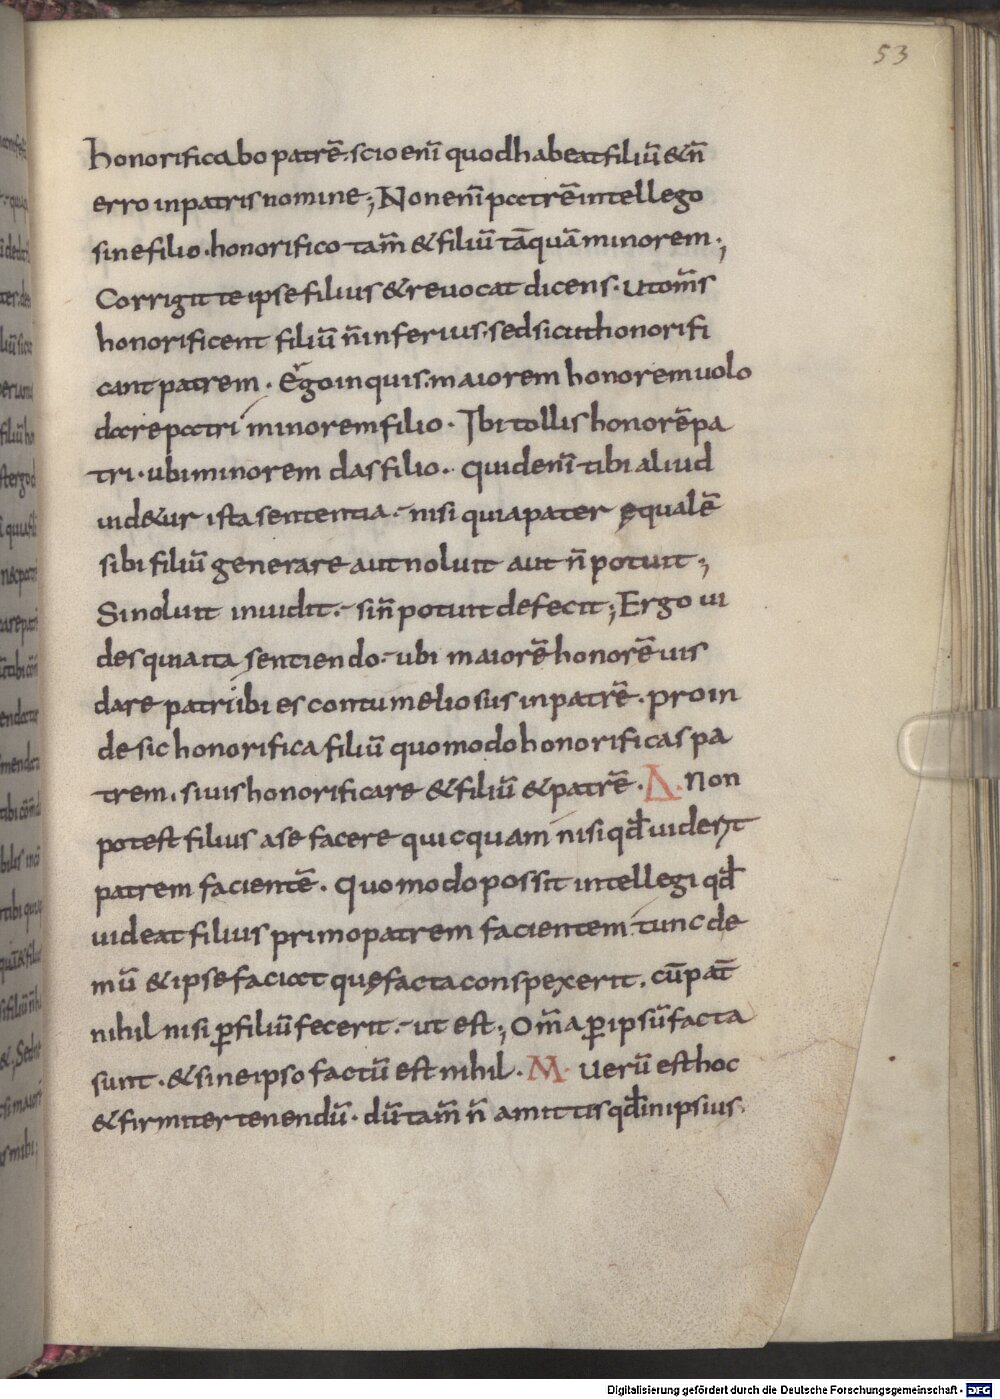 53
honorificabo patrē. scio enī quod habeat filiū & n̄
erro in patris nomine; Non enī patrē intellego
sine filio. honorifico tam̄ & filiū tāquā minorem;
Corrigit te ipse filius & reuocat dicens. Ut om̄s
honorificent filiū n̄ inferius. sed sicut honorifi
cant patrem. Ego inquis. maiorem honorem uolo
dare patri minorem filio. Ibi tollis honorē pa
tri. ubi minorem das filio. quid enī tibi aliud
uid&ur ista sententia. nisi quia pater ęqualē
sibi filiū generare aut noluit aut n̄ potuit;
Si noluit inuidit. si n̄ potuit defecit; Ergo ui
des quia ita sentiendo. ubi maiorē honorē uis
dare patri ibi es contumeliosus in patrē. proin
de sic honorifica filiū quomodo honorificas pa
trem. si uis honorificare & filiū & patrē. Δ. Non
potest filius a se facere quicquam nisi qđ uiderit
patrem facientē. Quomodo possit intellegi qđ
uideat filius primo patrem facientem. tunc de
mū & ipse faciat quę facta conspexerit. cū pat̄
nihil nisi p̄ filiū fecerit. ut est; Om̄a p̄ ipsū facta
sunt. & sine ipso factū est nihil. M. Uerū est hoc
& firmiter tenendū. dū tam̄ n̄ amittis qđ in ipsius
Digitalisierung gefördert durch die Deutsche Forschungsgemeinschaft - DFG